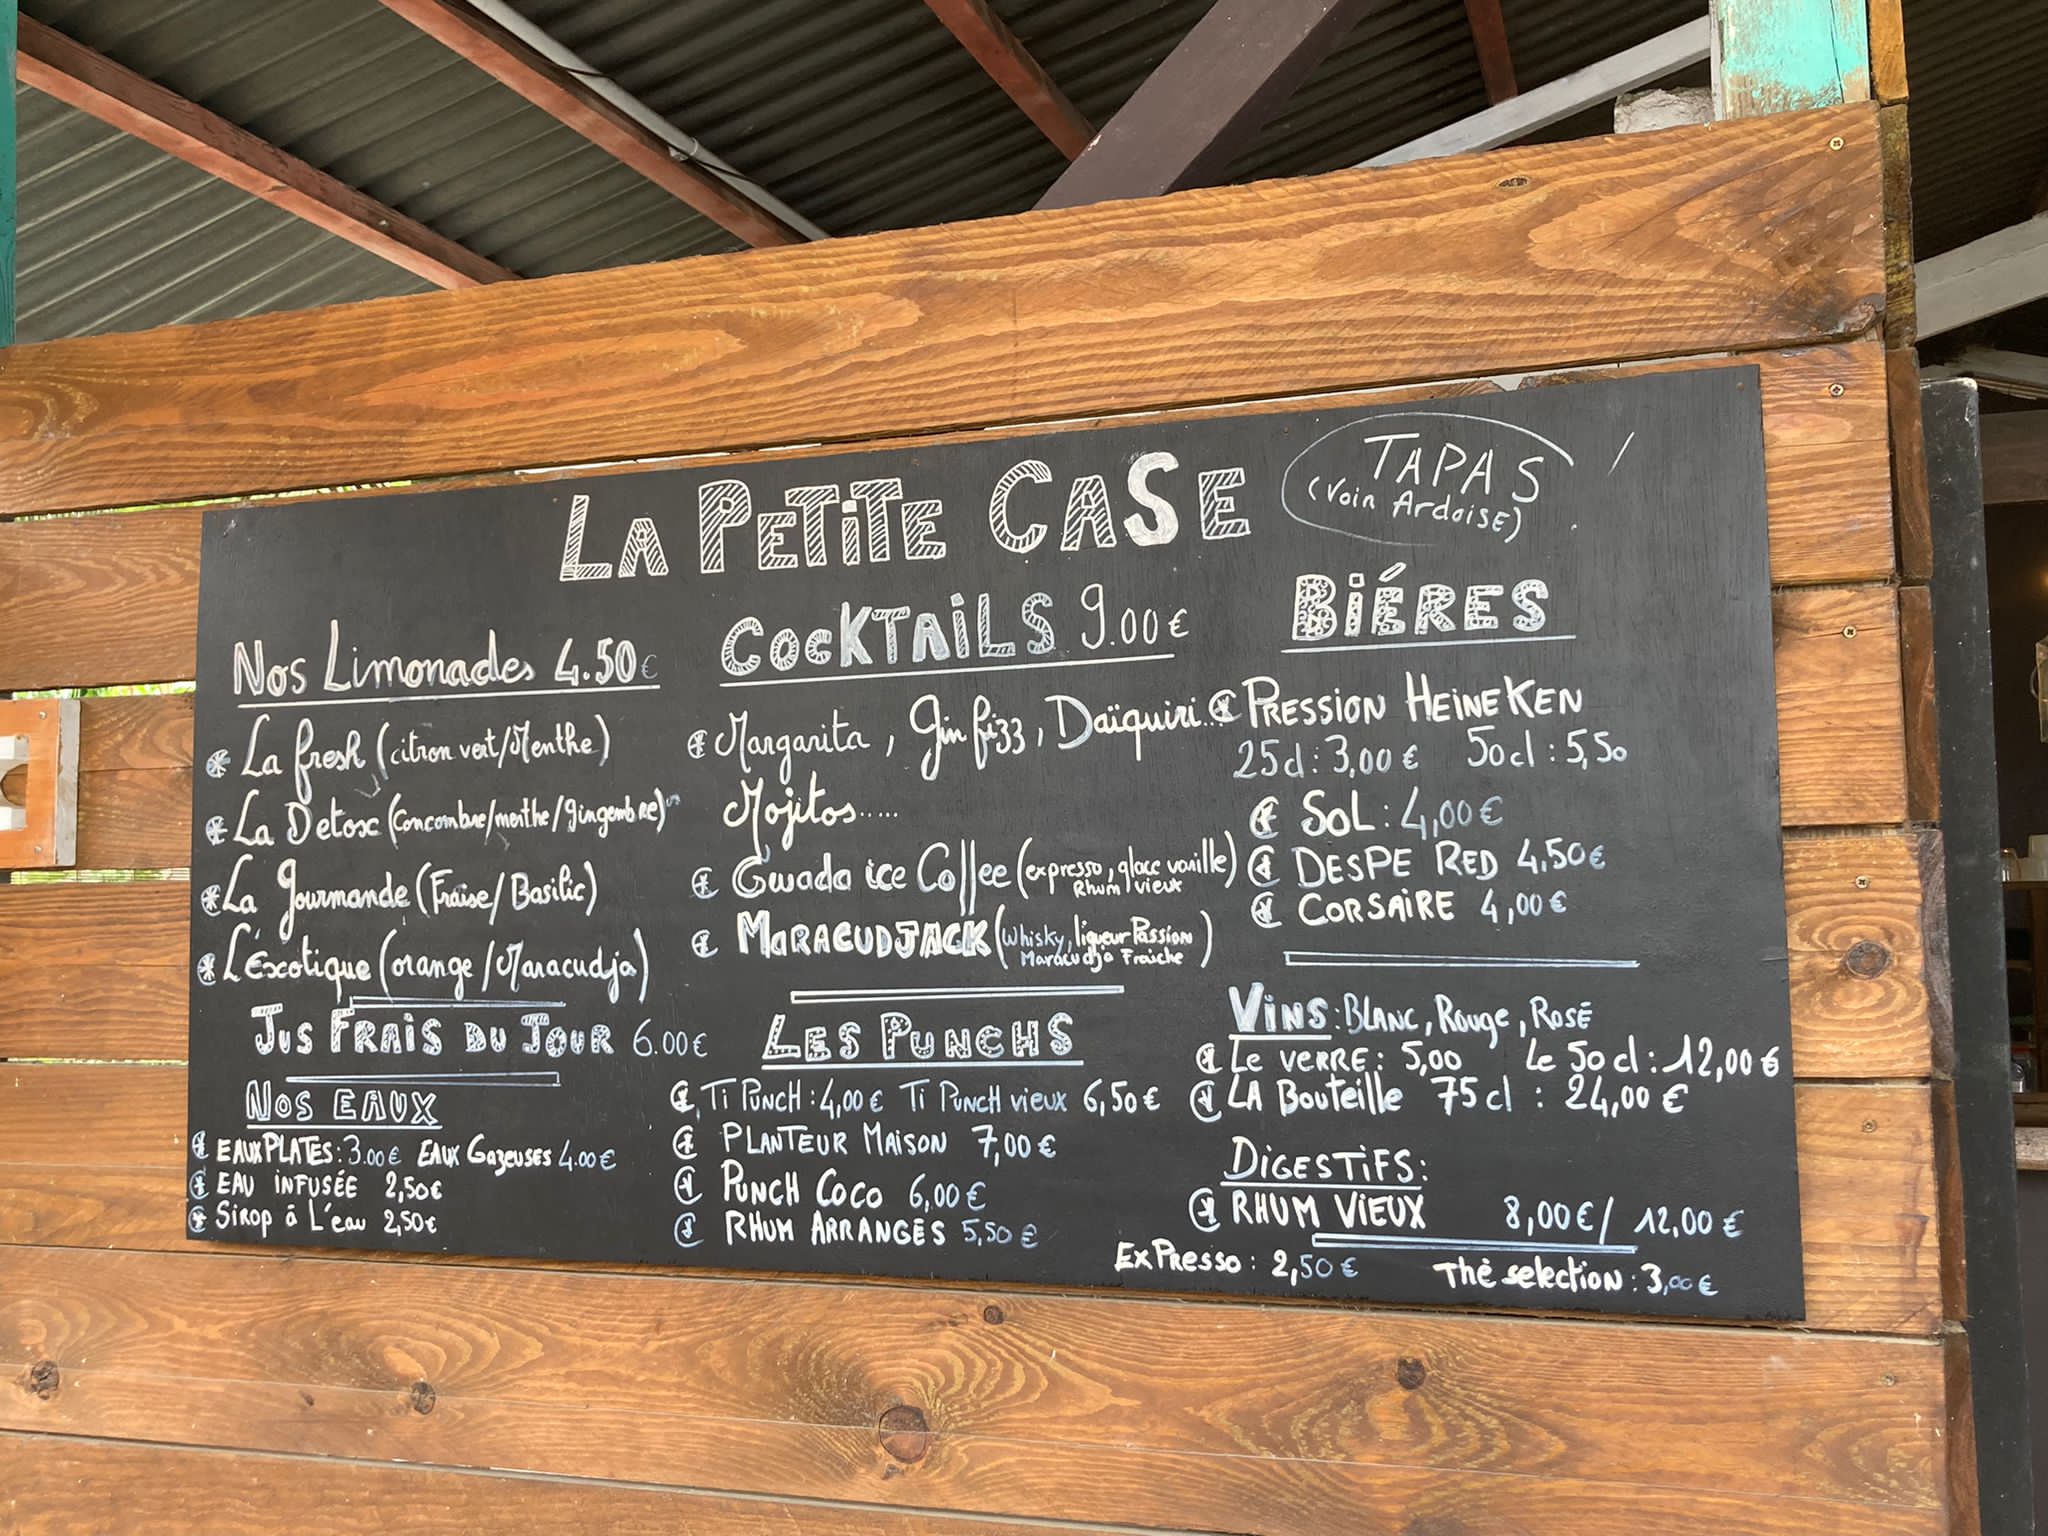 LA PETITE CASE
TAPAS
(Voir Ardoise)
Nos Limonades 4.50€
La fresh (citron vert/Menthe)
La Detox (Concombre/menthe/gingembre)
La gourmande (Fraise/Basilic)
L'Exotique (orange/Maracudja)
JUS FRAIS DU JOUR 6.00€
NOS EAUX
EAUX PLATES: 3.00€ EAUX GAZEUSES 4.00€
EAU INFUSÉE 2,50€
SIROP à L'eau 2,50€
COCKTAILS 9.00€
Margarita, Gin fizz, Daïquiri..
Mojitos.....
Gwada ice Coffee (expresso, glace vanille)
Rhum vieux
MARACUDJACK (Whisky, liqueur Passion
Maracudja Fraiche)
LES PUNCHS
TI PUNCH: 4,00€ TI PUNCH vieux 6,50€
PLANTEUR MAISON 7,00€
PUNCH COCO 6,00€
RHUM ARRANGES 5,50€
BIÉRES
PRESSION HEINEKEN
25cl: 3,00€ 50cl: 5,50
SOL: 4,00€
DESPE RED 4,50€
CORSAIRE 4,00€
VINS: BLANC, Rouge, ROSÉ
Le VERRE: 5,00 Le 50cl: 12,00€
LA Bouteille 75cl : 24,00€
DIGESTIFS:
RHUM VIEUX 8,00€/ 12,00€
ExPresso: 2,50€ Thé selection: 3,00€